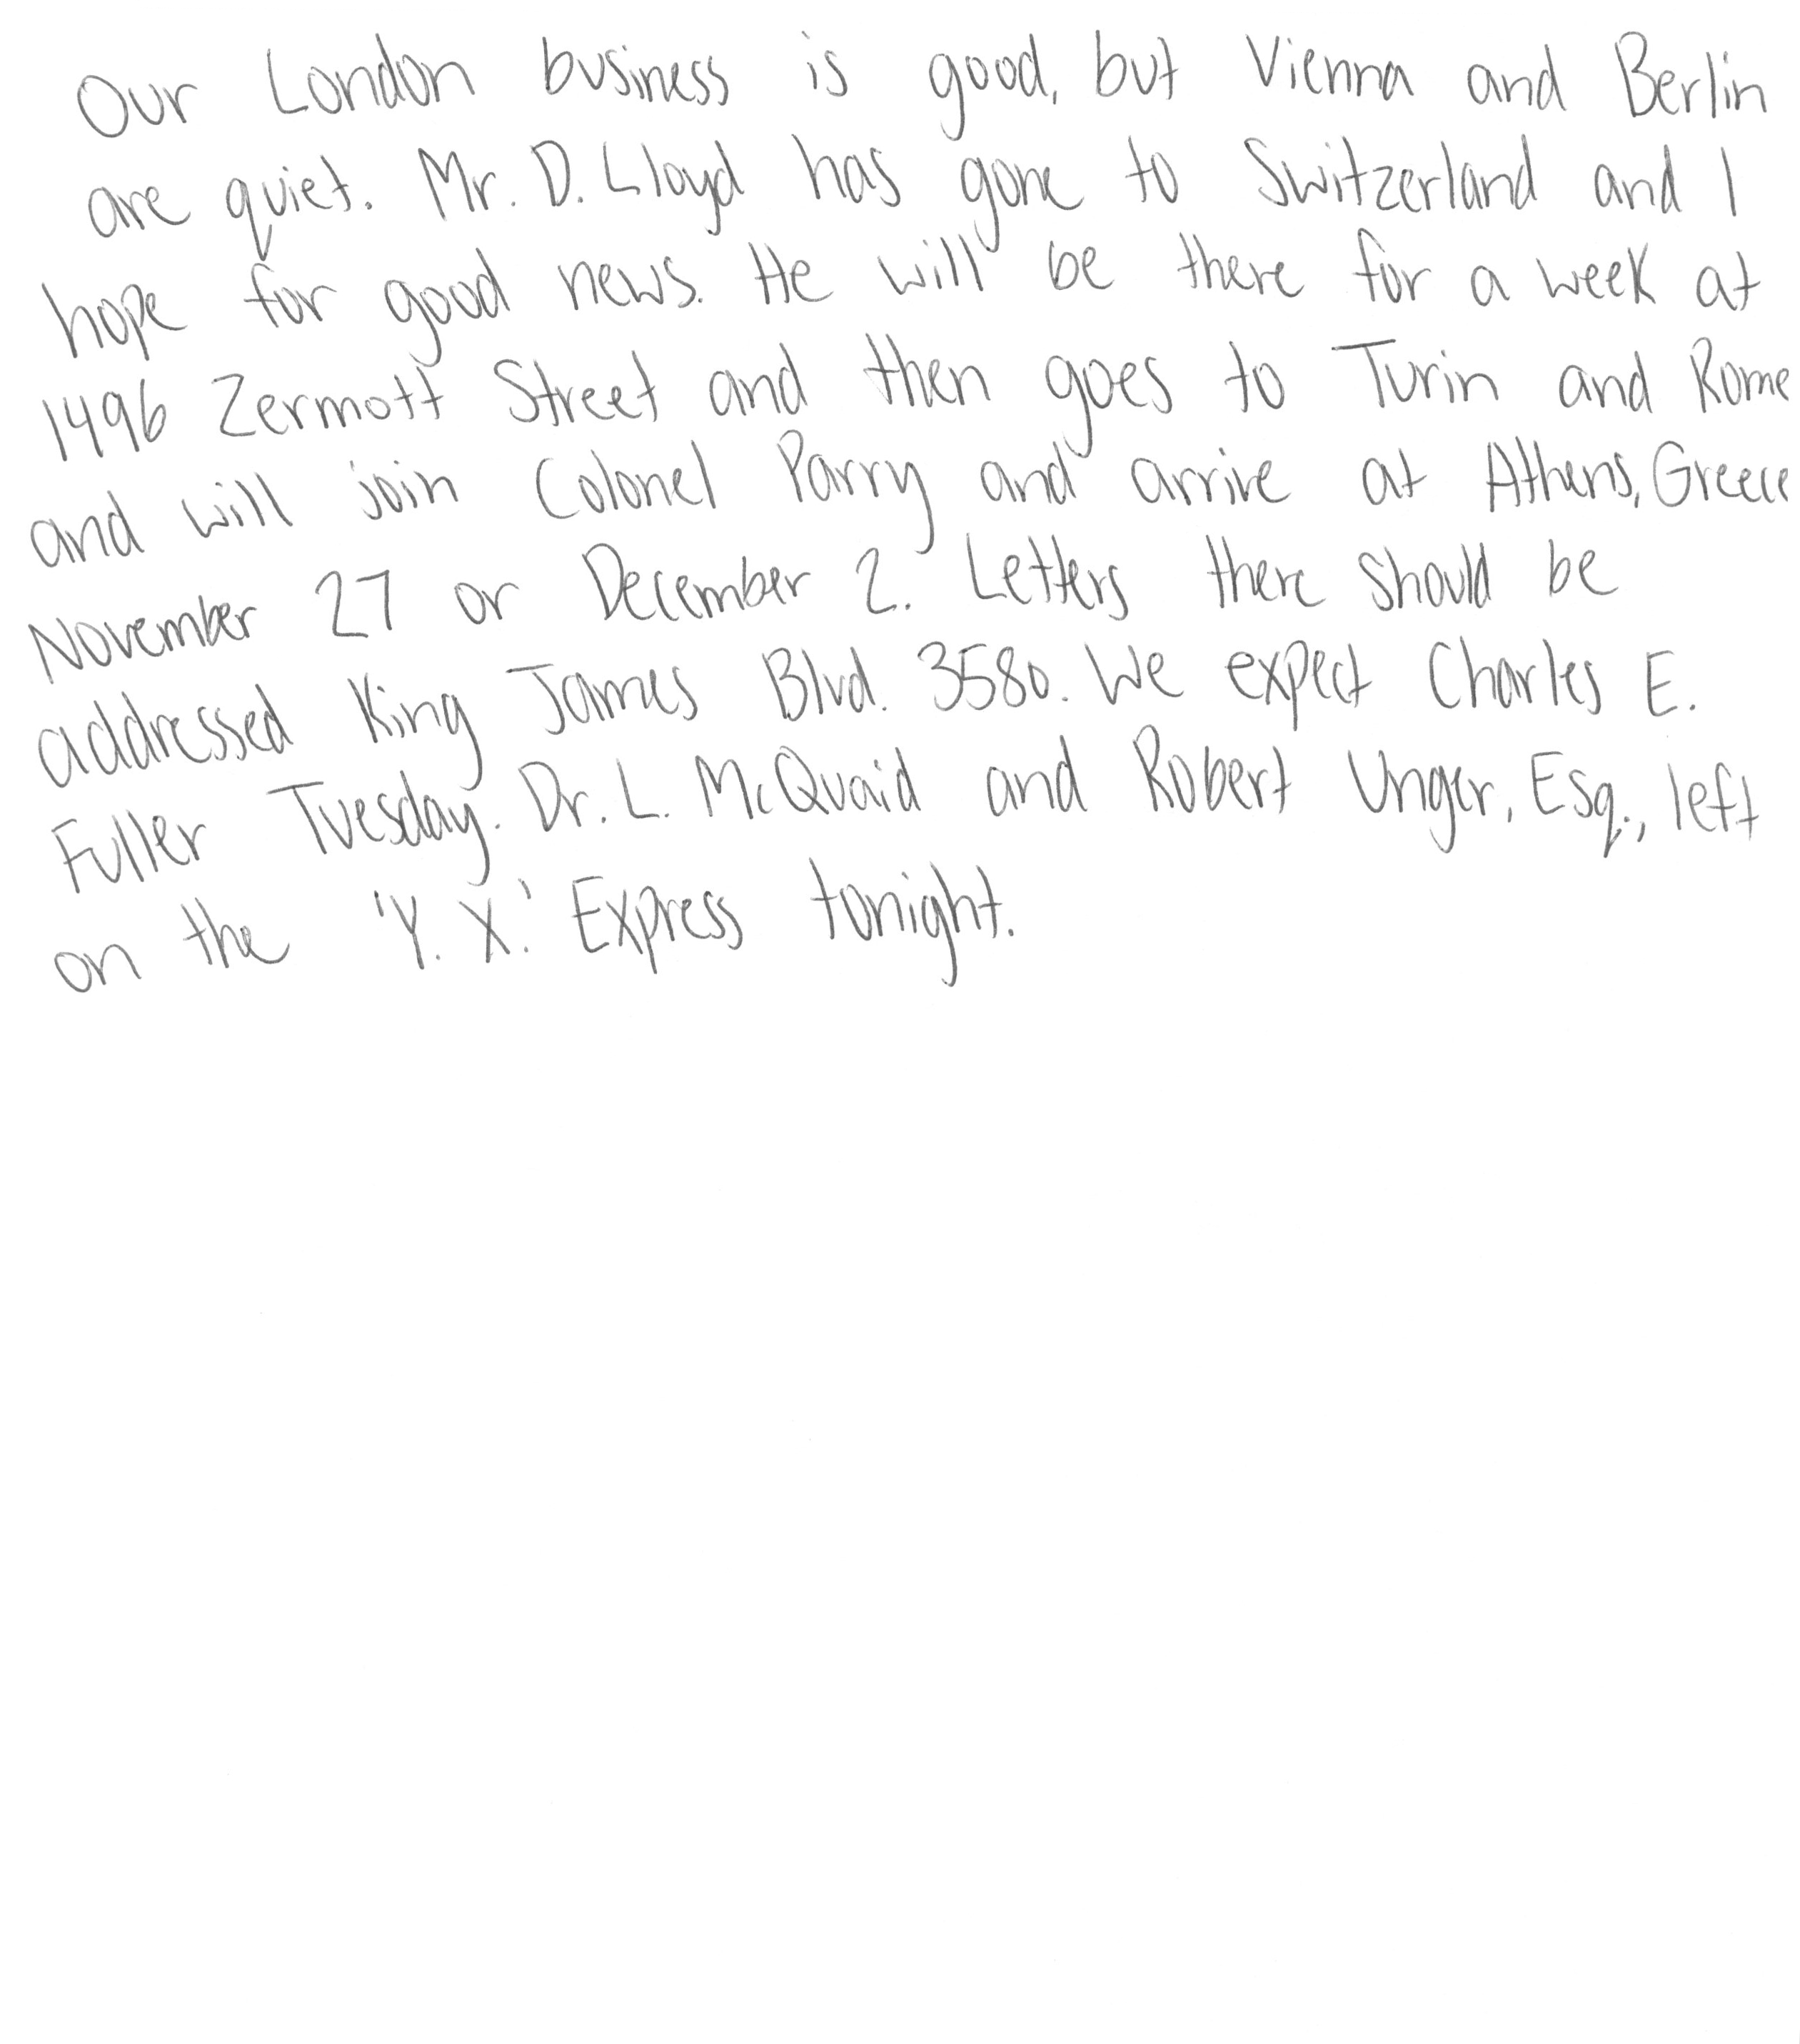 Our London business is good, but Vienna and Berlin
are quiet. Mr. D. Lloyd has gone to Switzerland and I
hope for good news. He will be there for a week at
1496 Zermott Street and then goes to Turin and Rome
and will join Colonel Parry and arrive at Athens, Greece
November 27 or December 2. Letters there should be
addressed King James Blvd. 3580. We expect Charles E.
Fuller Tuesday. Dr. L. McQuaid and Robert Unger, Esq., left
on the 'Y. X.' Express tonight.